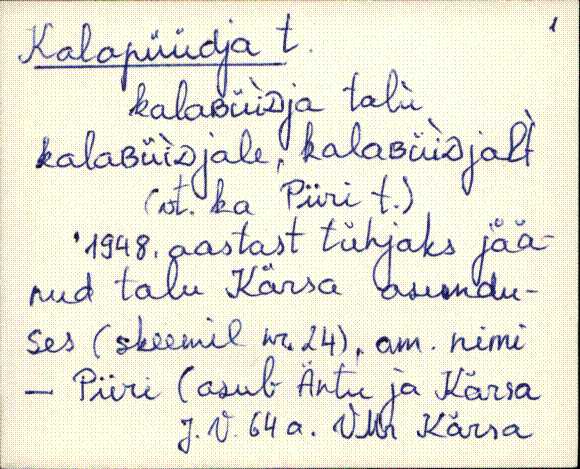 1
Kalapüüdja t.
kalaʙüìᴅja talù
kalaʙüìᴅjale, kalaʙüìᴅjalt̀
(vt. ka Piiri t.)
1948. aastast tühjaks jää-
nud talu Kärsa asundu-
ses (skeemil nr. 24), am. nimi
– Piiri (asub Äntu ja Kärsa
J. V. 64 a. VMr Kärsa